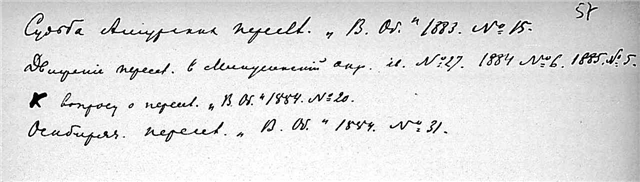 57
Судьба Амурских пересел. „В. Об." 1883. № 15.
Движение пересел. в Минусинский окр. ib. № 27. 1884 № 6. 1885. № 5.
К вопросу о пересел. „В. Об." 1884. № 20.
Осибиряч. пересел. „В. Об." 1884. № 31.